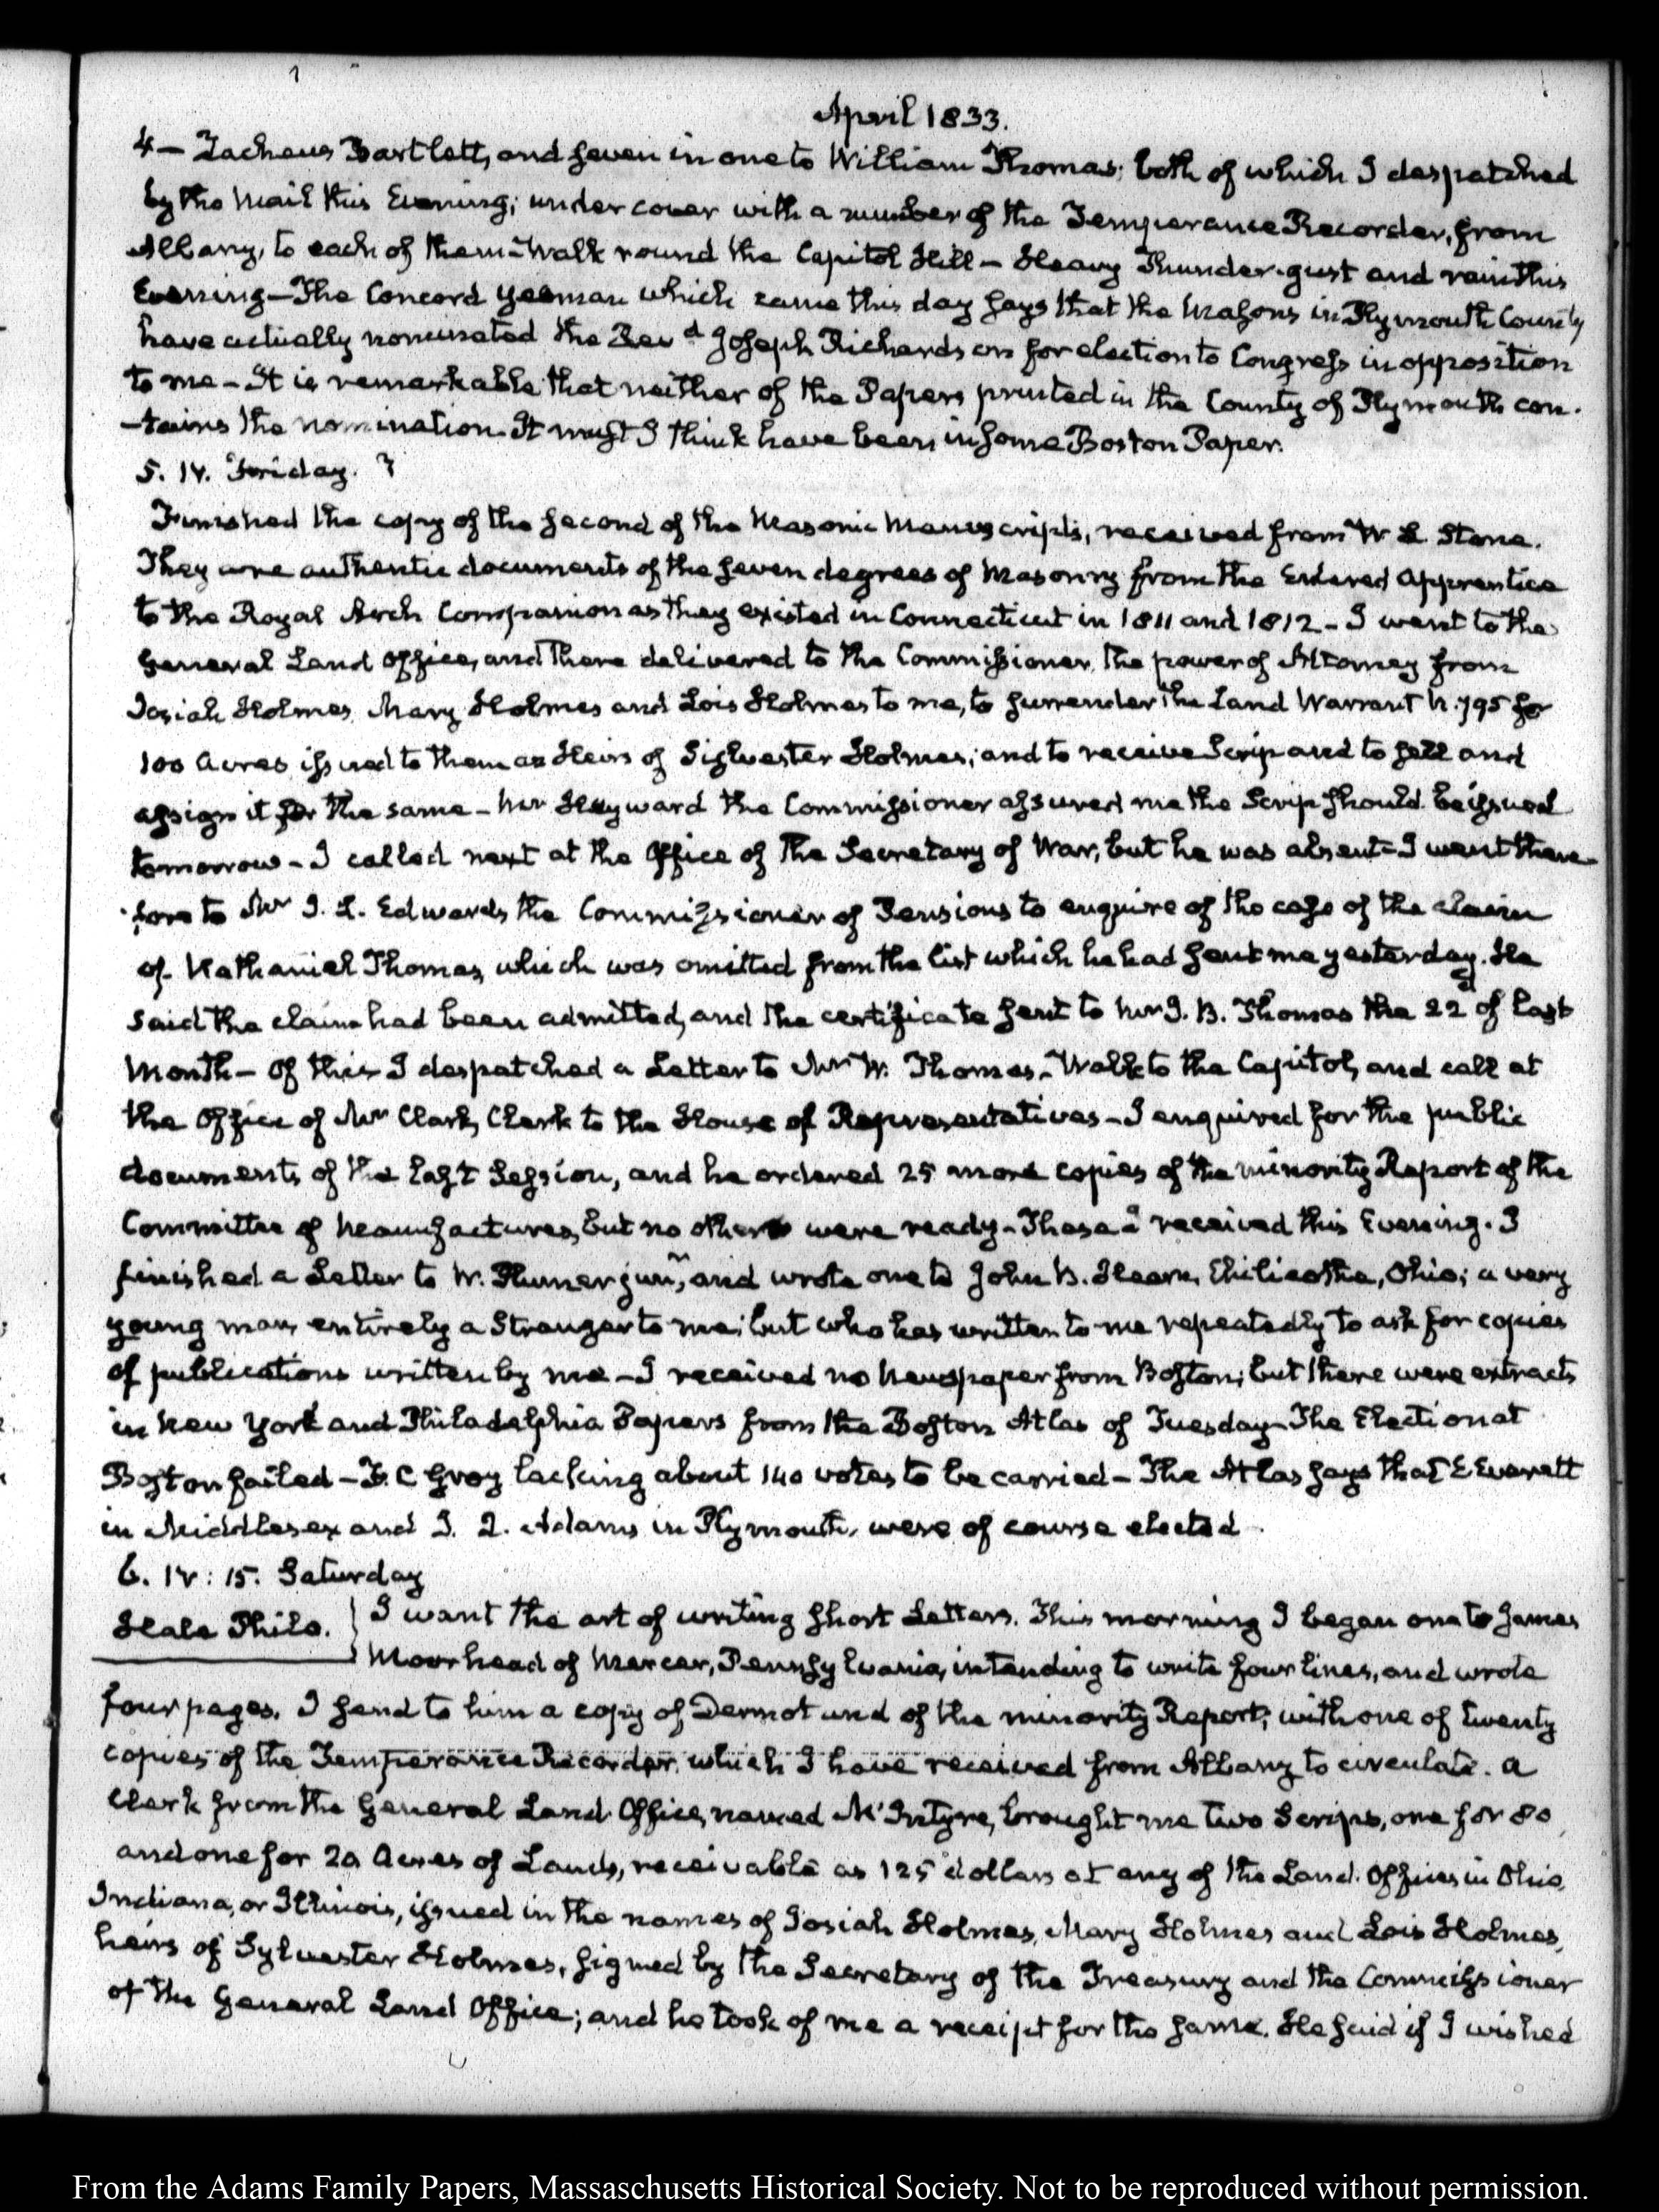 April 1833.
4 — Zacheus Bartlett, and seven in one to William Thomas; both of which I despatched
by the Mail this Evening; under cover with a number of the Temperance Recorder, from
Albany, to each of them — Walk round the Capitol Hill — Heavy Thunder-gust and rain this
Evening — The Concord Yeoman which came this day says that the Masons in Plymouth County
have actually nominated the Revd Joseph Richardson for election to Congress in opposition
to me — It is remarkable that neither of the Papers printed in the County of Plymouth con-
-tains the nomination. It must I think have been in some Boston Paper.
5. IV. Friday.
Finished the copy of the second of the Masonic Manuscripts, received from W. L. Stone.
They are authentic documents of the seven degrees of Masonry from the Entered Apprentice
to the Royal Arch Companion as they existed in Connecticut in 1811 and 1812 — I went to the
General Land Office, and there delivered to the Commissioner, the power of Attorney from
Josiah Holmes, Mary Holmes and Lois Holmes to me, to surrender the Land Warrant N. 795 for
100 Acres issued to them as Heirs of Silvester Holmes; and to receive Scrip and to sell and
assign it for the same — Mr Hayward the Commissioner assured me the Scrip should be issued
tomorrow — I called next at the Office of the Secretary of War, but he was absent — I went there-
-fore to Mr J. L. Edwards the Commissioner of Pensions to enquire of the case of the claim
of Nathaniel Thomas, which was omitted from the list which he had sent me yesterday. He
said the claim had been admitted, and the certificate sent to Mr J. B. Thomas the 22d of last
Month — Of this I despatched a Letter to Mr W. Thomas — Walk to the Capitol, and call at
the Office of Mr Clark, Clerk to the House of Representatives — I enquired for the public
documents of the last Session, and he ordered 25 more copies of the minority Report of the
Committee of Manufactures, but no others were ready — These I received this Evening. I
finished a Letter to W. Plumer junr, and wrote one to John B. Hearn, Chilicothe, Ohio; a very
young man, entirely a Stranger to me; but who has written to me repeatedly to ask for copies
of publications written by me — I received no Newspaper from Boston; but there were extracts
in New York and Philadelphia Papers from the Boston Atlas of Tuesday — The Election at
Boston failed — F. C Gray lacking about 140 votes to be carried — The Atlas says that E Everett
in Middlesex and J. Q. Adams in Plymouth, were of course elected.
6. IV: 15. Saturday
Hale Philo.
I want the art of writing short Letters. This morning I began one to James
Moorhead of Mercer, Pennsylvania, intending to write four lines, and wrote
four pages. I send to him a copy of Dermot and of the minority Report; with one of twenty
copies of the Temperance Recorder which I have received from Albany to circulate. A
Clerk from the General Land Office, named McIntyre, brought me two Scrips, one for 80,
and one for 20 Acres of Lands, receivable as 125 dollars at any of the Land Offices in Ohio,
Indiana, or Illinois, issued in the names of Josiah Holmes, Mary Holmes and Lois Holmes,
heirs of Sylvester Holmes, signed by the Secretary of the Treasury and the Commissioner
of the General Land Office; and he took of me a receipt for the same. He said if I wished
From the Adams Family Papers, Massachusetts Historical Society. Not to be reproduced without permission.